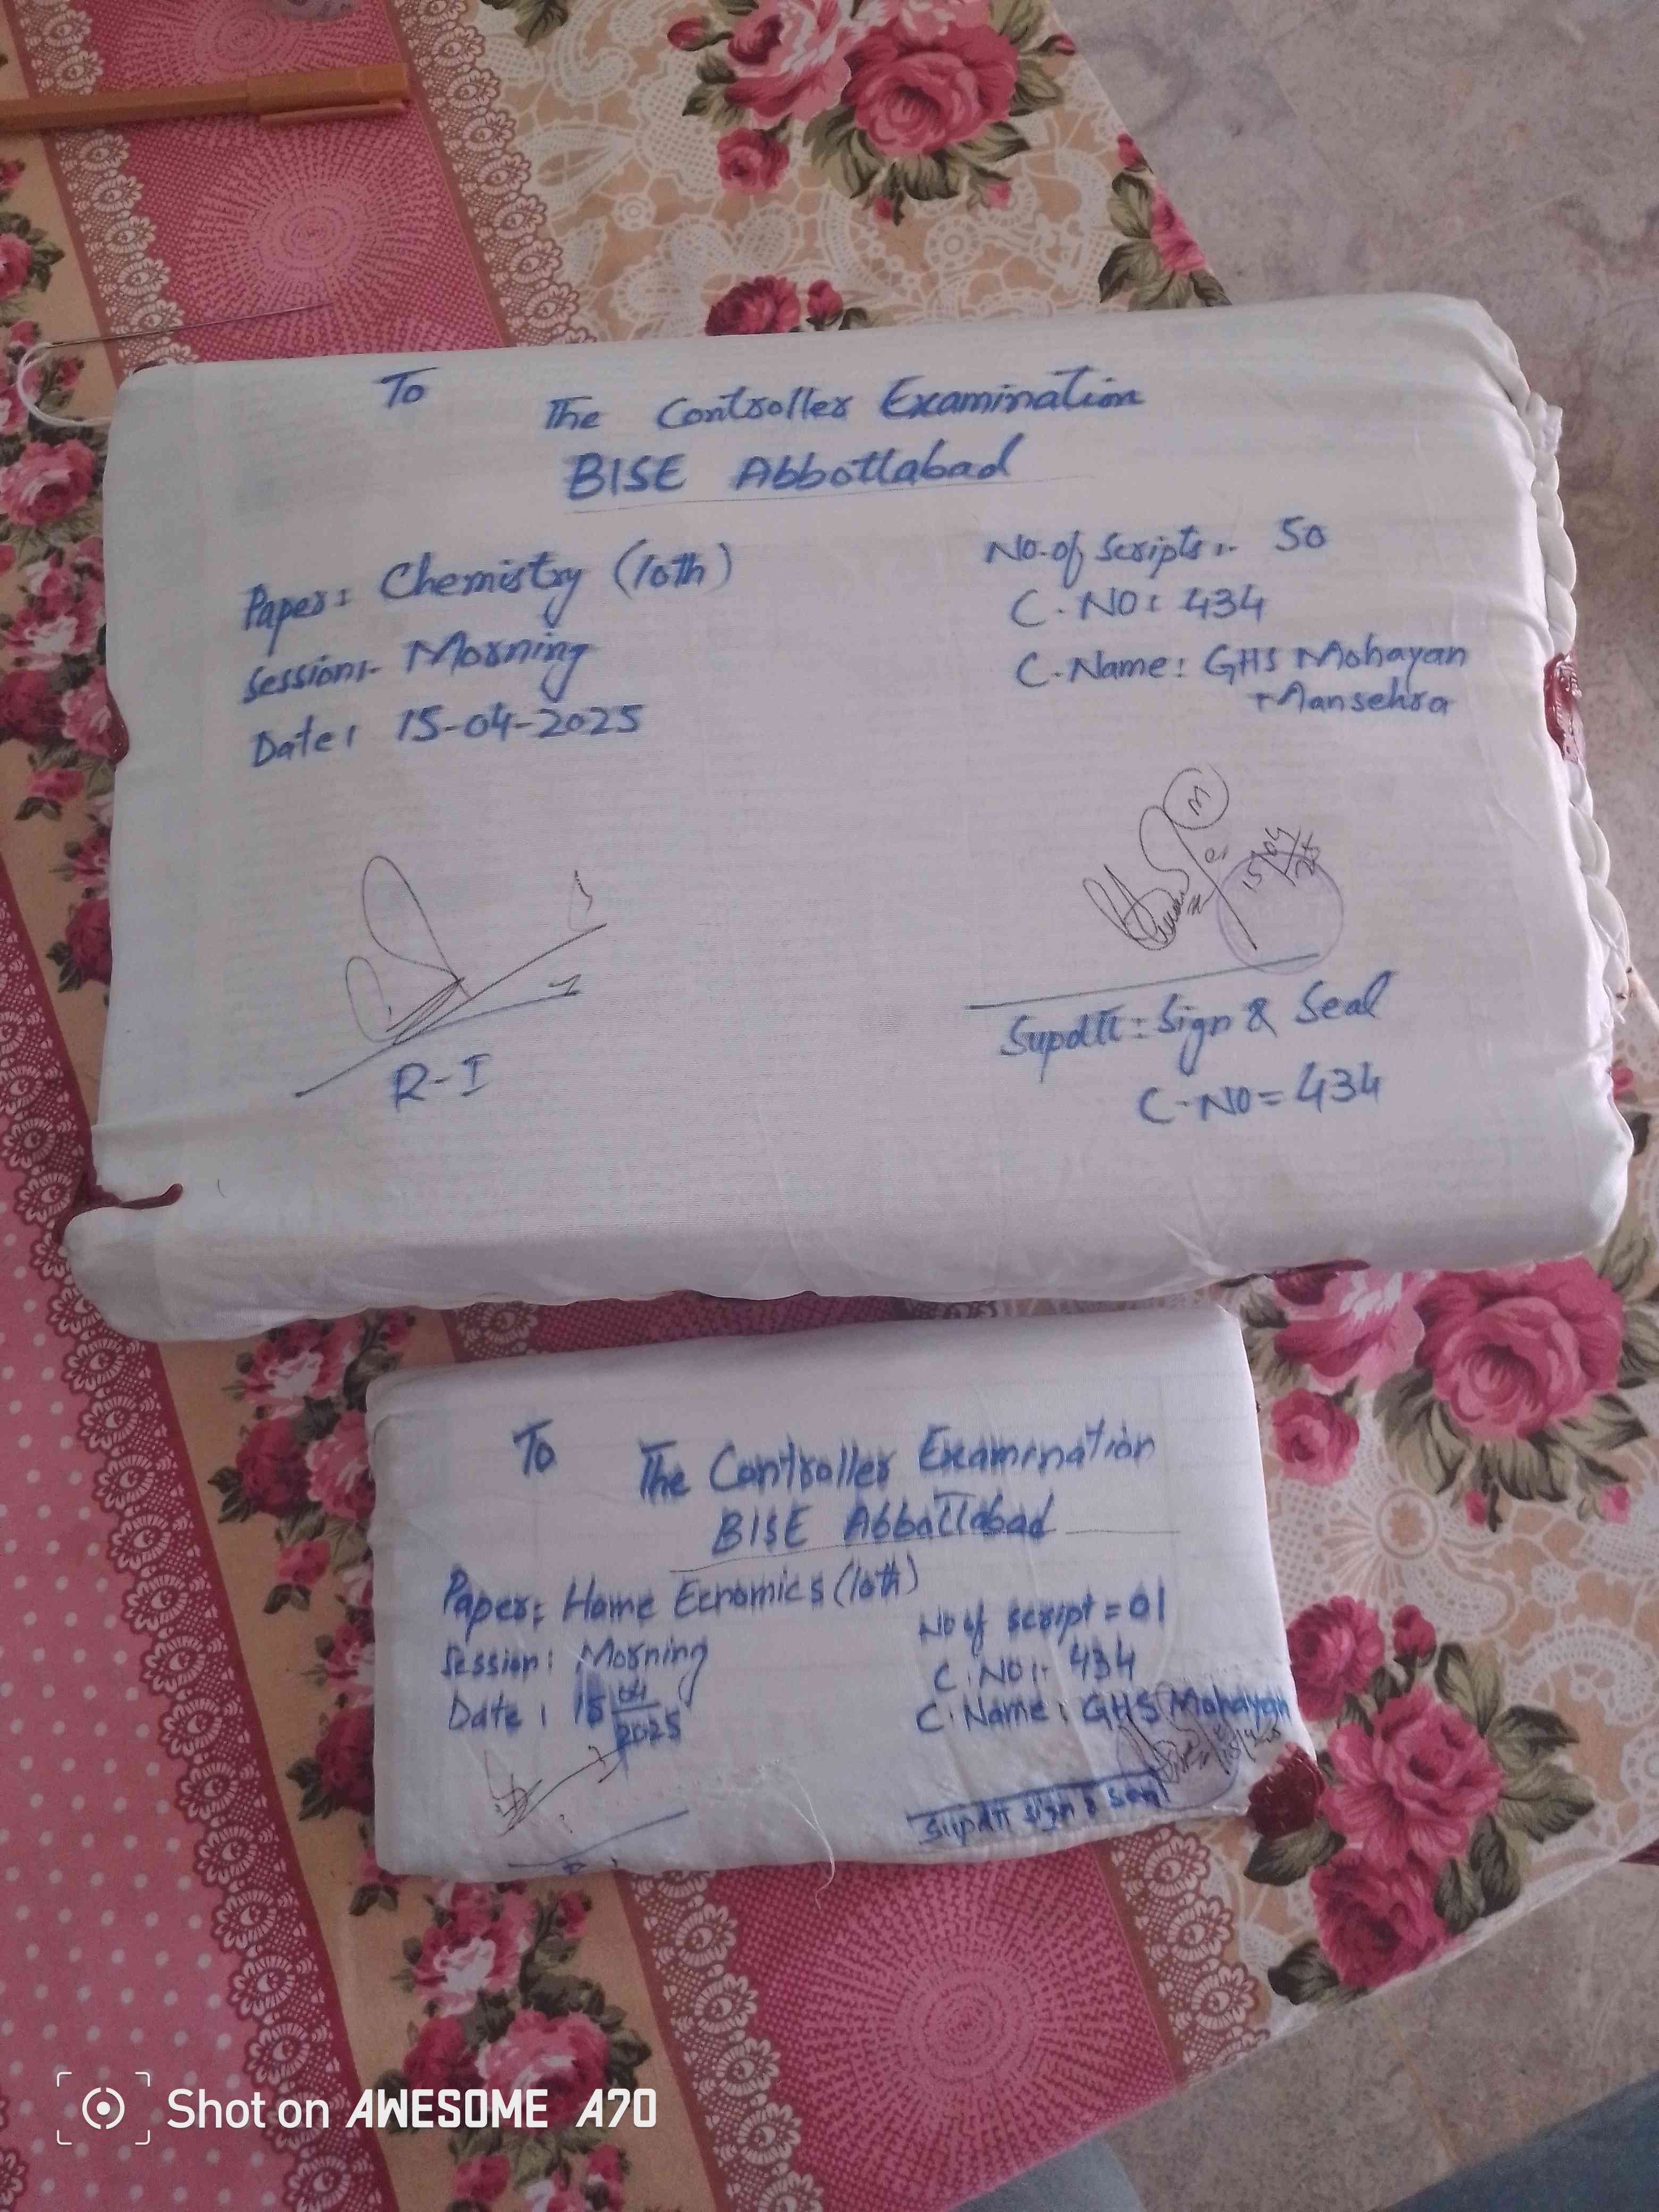 To
The Controller Examination
BISE Abbottabad
Paper: Chemistry (10th)
No. of Scripts:- 50
Session:- Morning
C. No: 434
Date: 15-04-2025
C. Name: GHS Mohayan
Mansehra
M
15/04/25
R-I
Supdtt: Sign & Seal
C-No = 434
To
The Controller Examination
BISE Abbottabad
Paper: Home Ecnomics (10th)
No of script = 01
Session: Morning
C. No:- 434
Date: 15 04/2025
C. Name: GHS Mohayan
Supdtt sign & seal
Shot on AWESOME A70